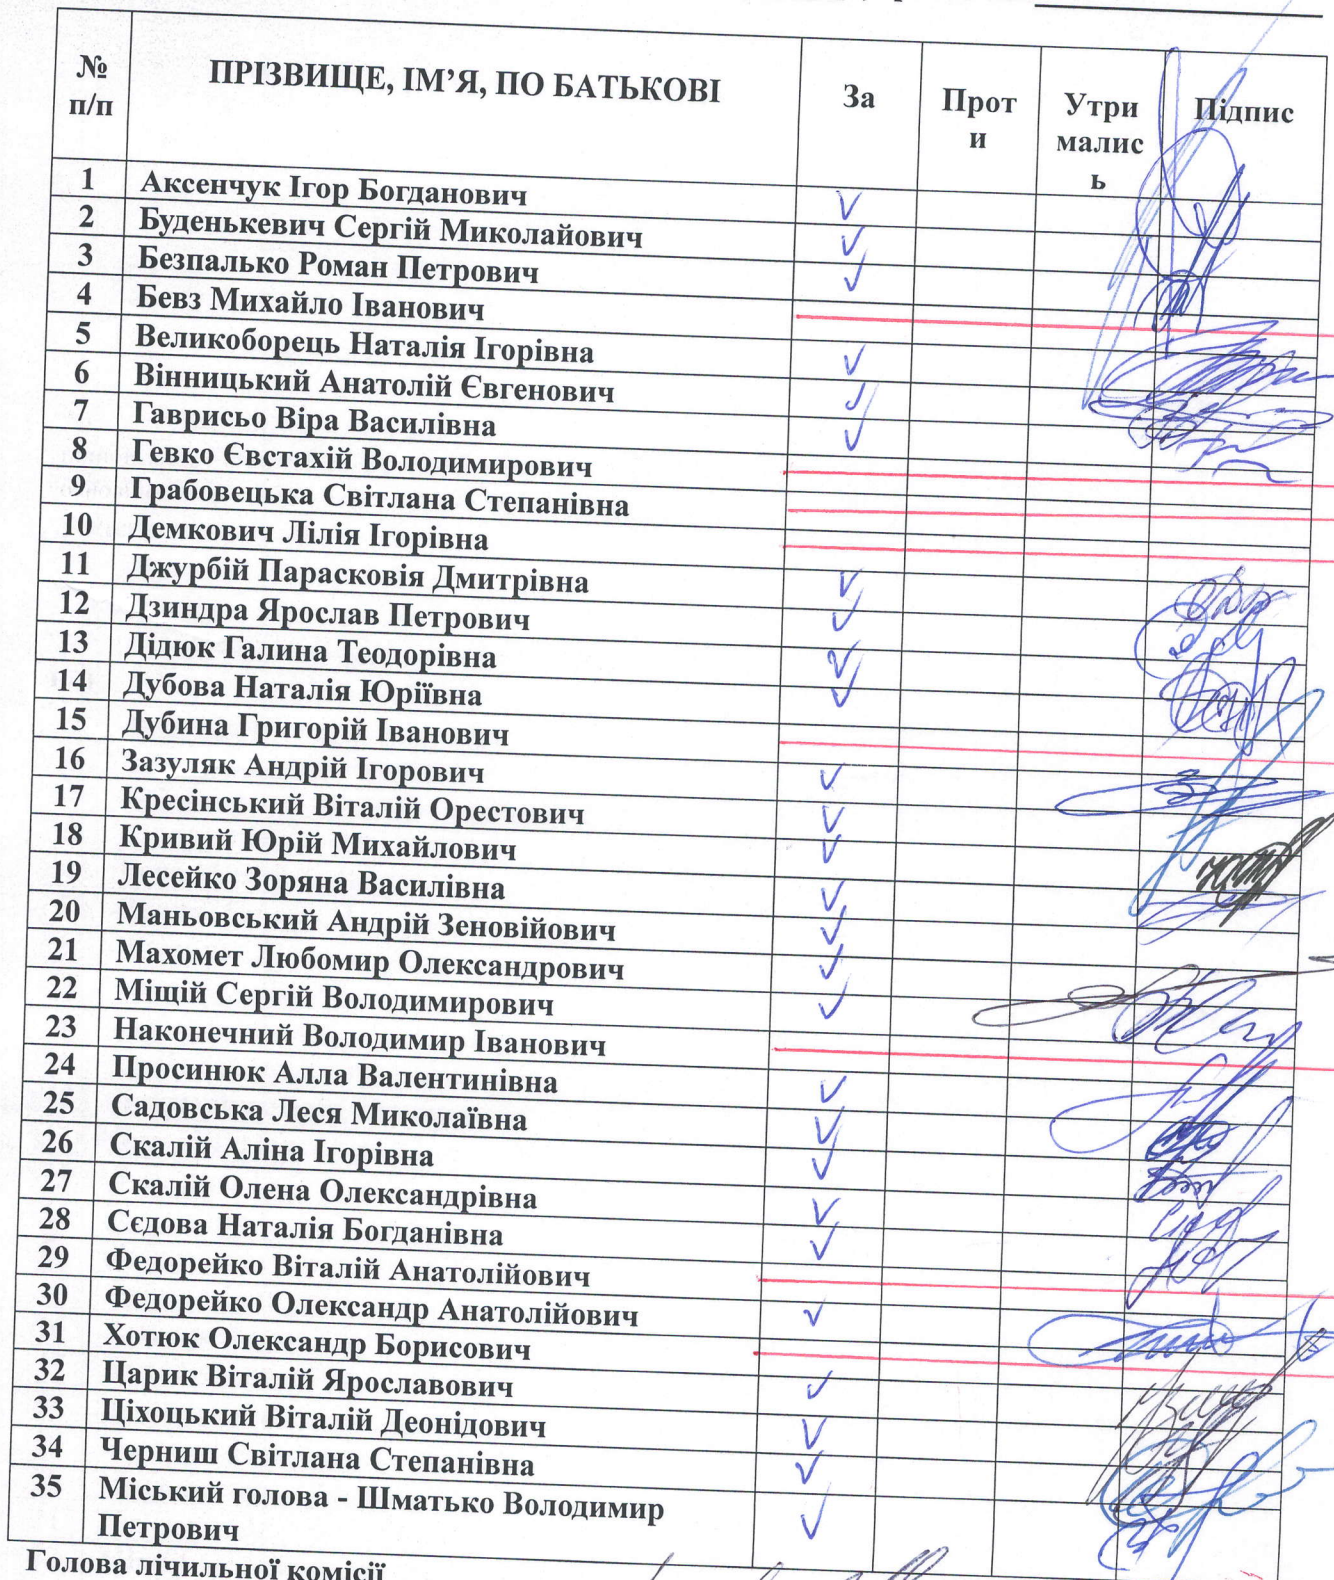 № п/п ПРІЗВИЩЕ, ІМ’Я, ПО БАТЬКОВІ За Проти Утрималис ь Підпис
1 Аксенчук Ігор Богданович V
2 Буденькевич Сергій Миколайович V
3 Безпалько Роман Петрович V
4 Бевз Михайло Іванович
5 Великоборець Наталія Ігорівна V
6 Вінницький Анатолій Євгенович V
7 Гаврисьо Віра Василівна V
8 Гевко Євстахій Володимирович
9 Грабовецька Світлана Степанівна
10 Демкович Лілія Ігорівна
11 Джурбій Парасковія Дмитрівна V
12 Дзиндра Ярослав Петрович V
13 Дідюк Галина Теодорівна V
14 Дубова Наталія Юріївна V
15 Дубина Григорій Іванович
16 Зазуляк Андрій Ігорович V
17 Кресінський Віталій Орестович V
18 Кривий Юрій Михайлович V
19 Лесейко Зоряна Василівна V
20 Маньовський Андрій Зеновійович V
21 Махомет Любомир Олександрович V
22 Міщій Сергій Володимирович V
23 Наконечний Володимир Іванович
24 Просинюк Алла Валентинівна V
25 Садовська Леся Миколаївна V
26 Скалій Аліна Ігорівна V
27 Скалій Олена Олександрівна V
28 Сєдова Наталія Богданівна V
29 Федорейко Віталій Анатолійович
30 Федорейко Олександр Анатолійович V
31 Хотюк Олександр Борисович
32 Царик Віталій Ярославович V
33 Ціхоцький Віталій Деонідович V
34 Черниш Світлана Степанівна V
35 Міський голова - Шматько Володимир
Петрович V
Голова лічильної комісії